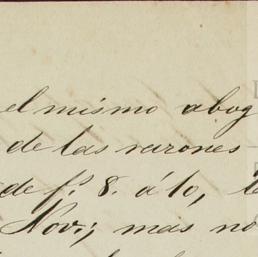 el mismo abog
de las razones
de fs. 8. á 10,
Novi; mas no